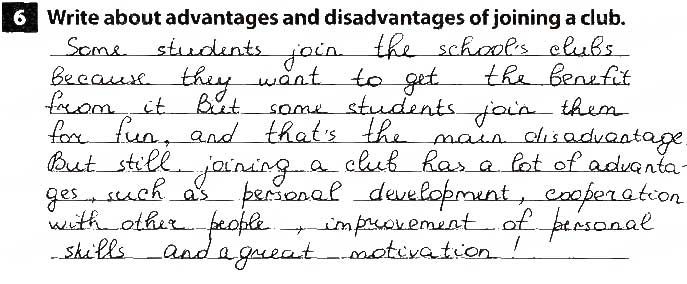 6 Write about advantages and disadvantages of joining a club.
Some students join the school's clubs
Because they want to get the benefit
from it But some students join them
for fun, and that's the main disadvantage.
But still joining a club has a lot of advanta-
ges, such as personal development, cooperation
with other people, improvement of personal
skills and a great motivation!